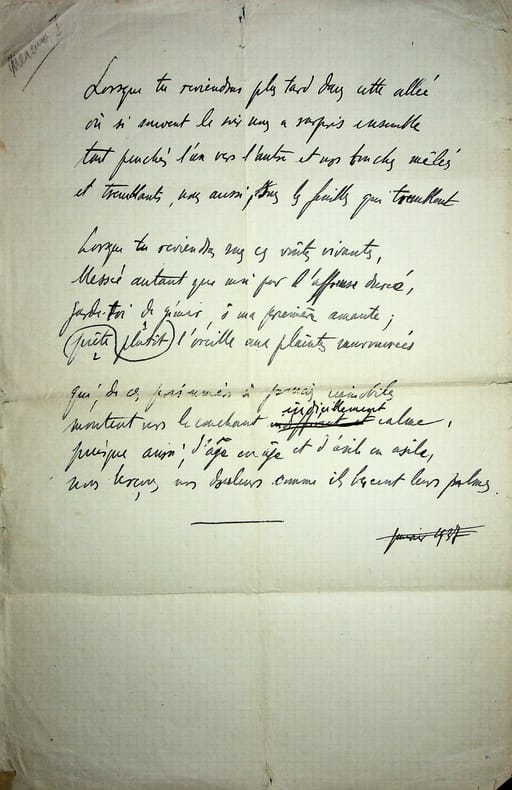 Lorsque tu reviendras plus tard dans cette allée
où si souvent le soir nous a surpris ensemble
tant penchés l'un vers l'autre et nos bouches mêlées
et tremblants, nous aussi, sous les feuilles qui tremblent
Lorsque tu reviendras sous ces voûtes vivantes,
blessé autant que moi par l'affreuse durée,
garde-toi de gémir ô ma première amante ;
prête plutôt l'oreille aux plaintes murmurées
2
qui, de ces prisonniers à jamais immobiles
indiciblement
montent vers le couchant calme,
puisque aussi, d'âge en âge et d'asile en asile,
nous berçons nos douleurs comme ils bercent leurs palmes.
1937